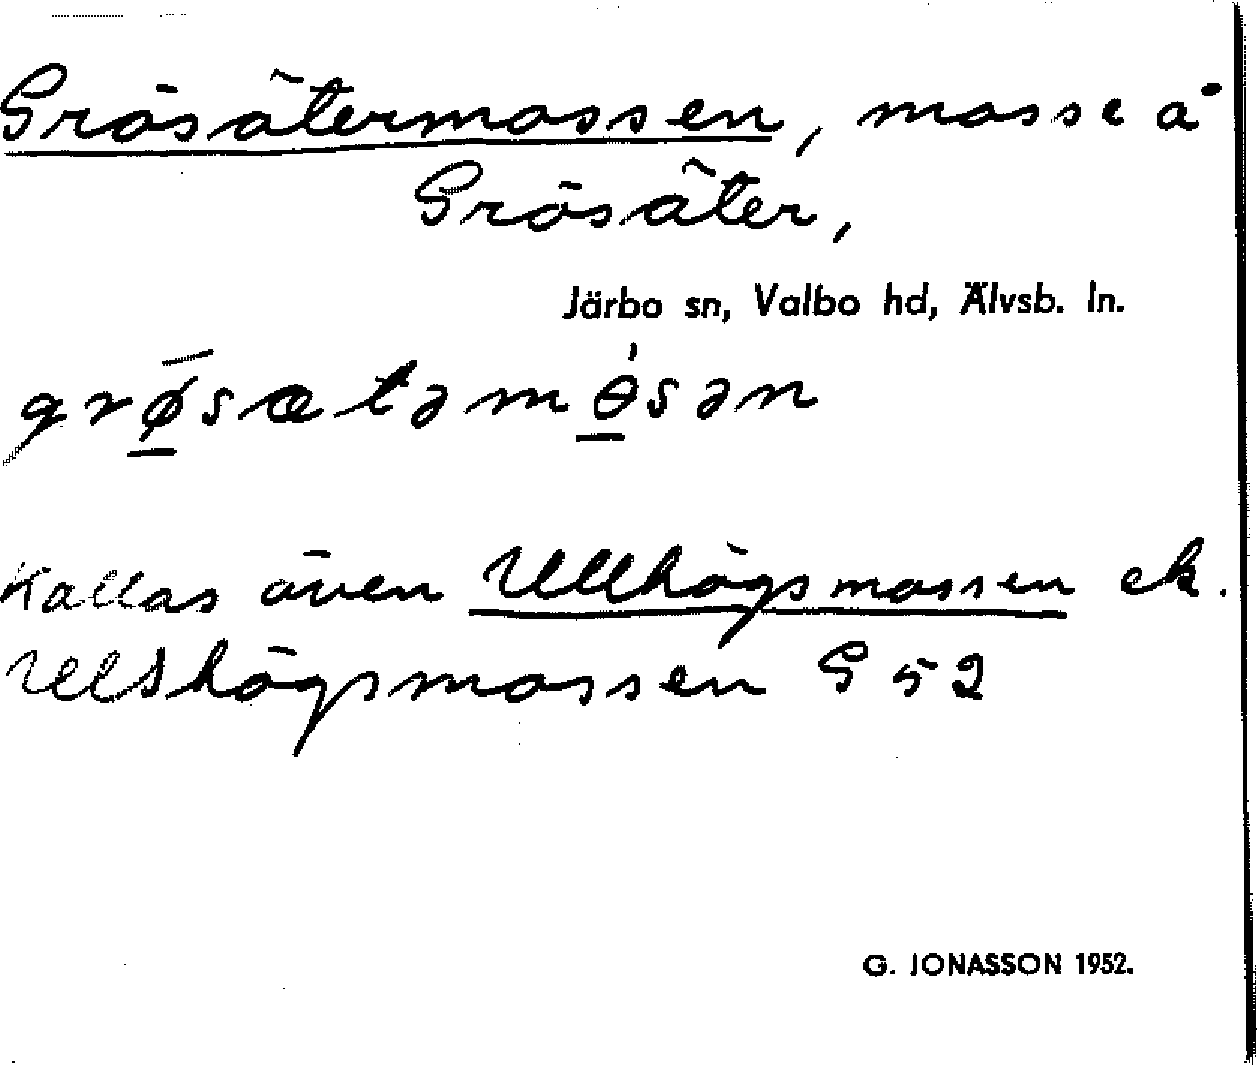 Grösätermossen, mosse å
Grösäter,
Järbo sn, Valbo hd, Älvsb. ln.
grø̱̄sætəmɵ̱́sən
Kallas även Ullhögsmossen ek.
Ullshögsmossen G 52
G. JONASSON 1952.